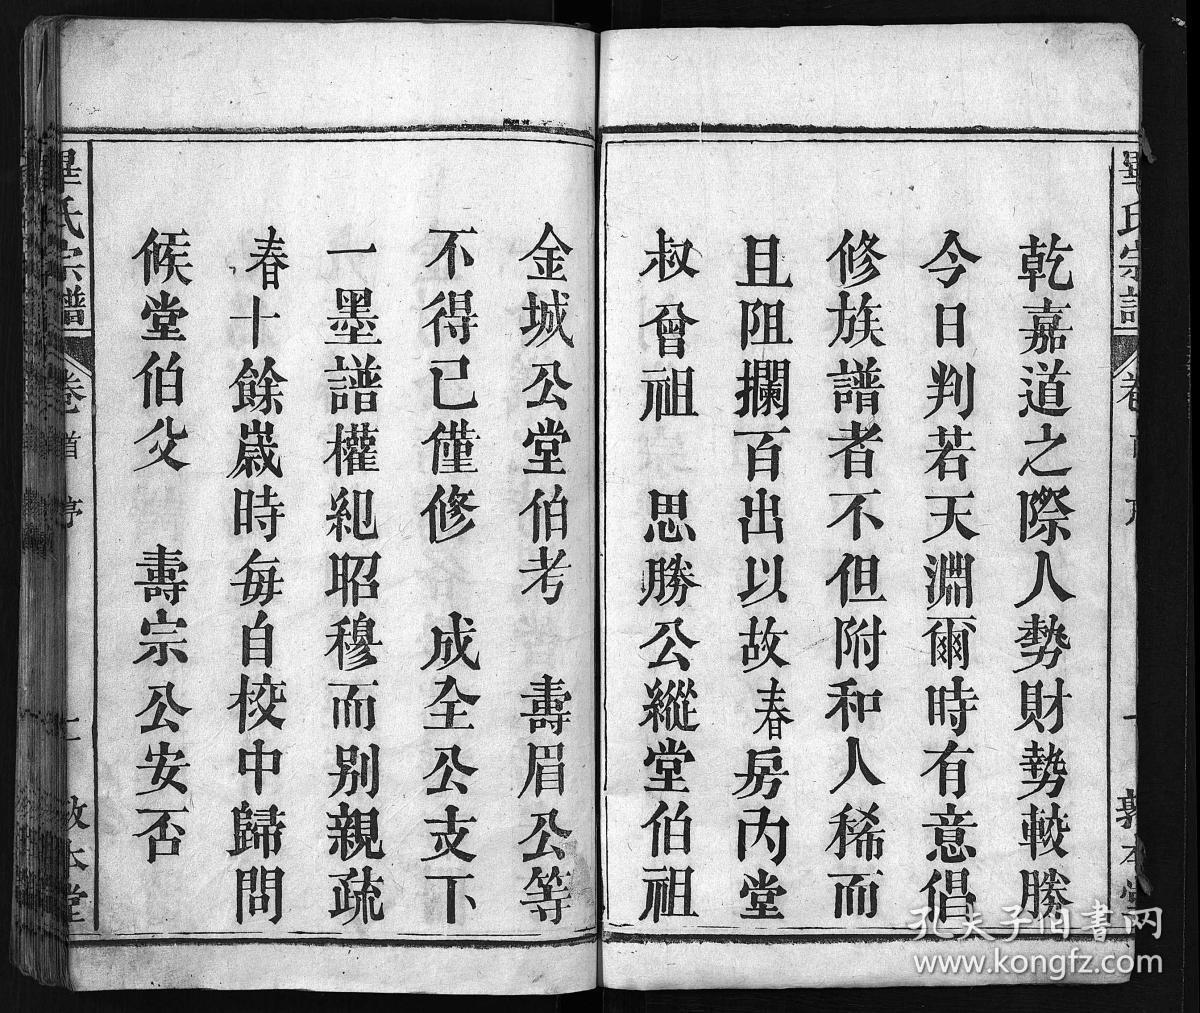 乾嘉道之際人勢財勢較勝
今日判若天淵爾時有意倡
修族譜者不但附和人稀而
且阻攔百出以故春房內堂
叔曾祖 思勝公縱堂伯祖
金城公堂伯考 壽眉公等
不得已僅修 成全公支下
一墨譜權紀昭穆而别親疏
春十餘嵗時每自校中歸問
候堂伯父 壽宗公安否
畢氏宗譜 卷首 序 敦本堂
孔夫子旧书网
www.kongfz.com